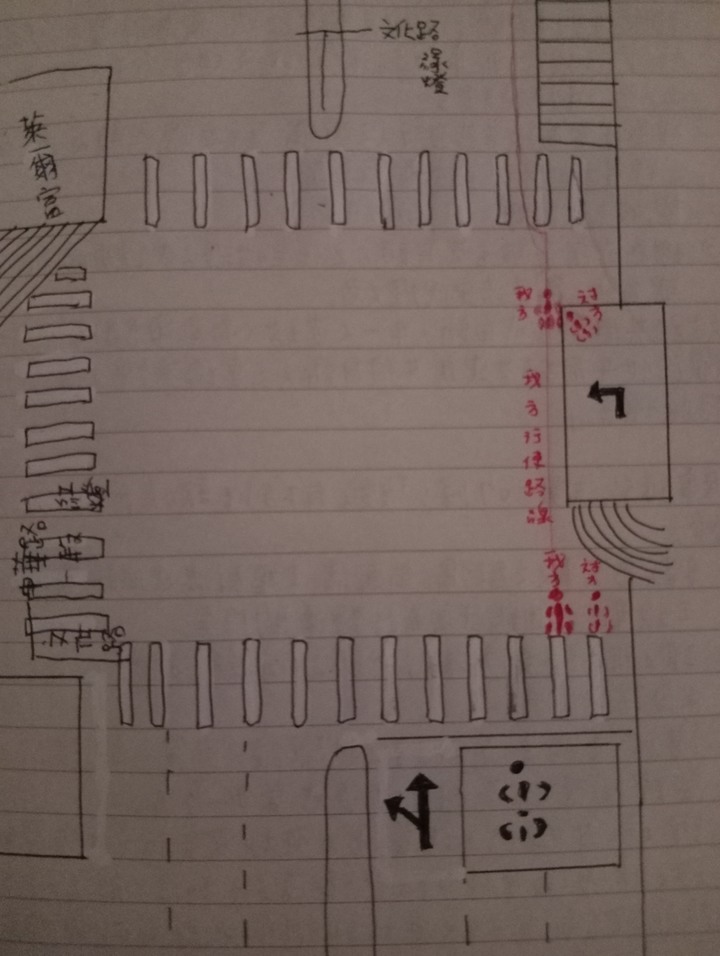 文化路
綠
燈
萊
爾
富
我
方
對
方
我
方
行
使
路
線
我
方
對
方
紅
燈
中華路
文化路